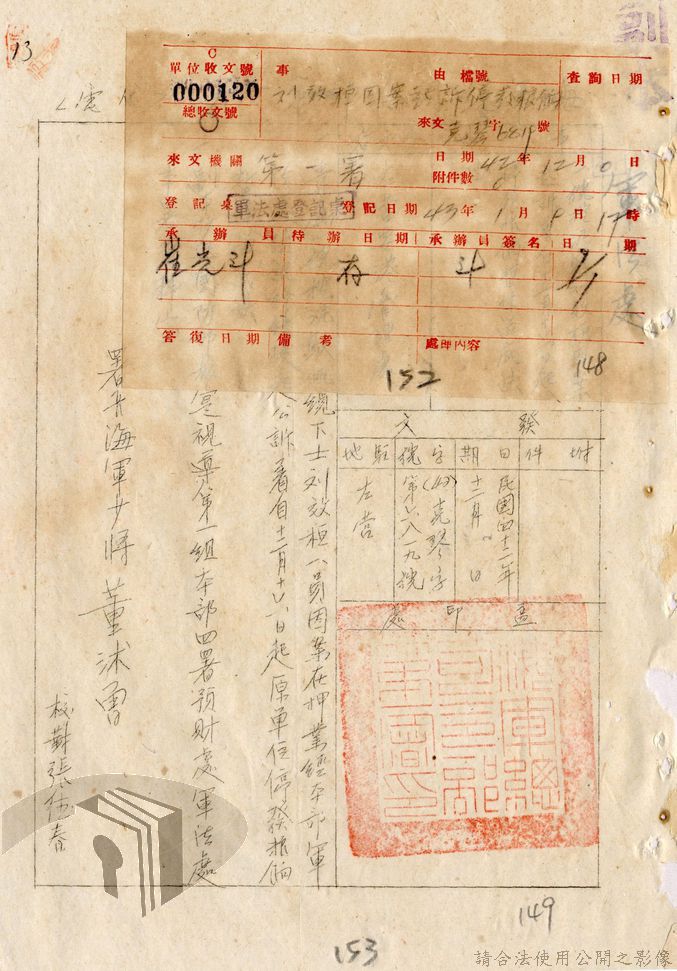 13
單位收文號
000120
總收文號
事由
劉效桓因案起訴停發糧餉
檔號
查詢日期
來文 字 號
來文機關 第一署
日期 42年12月 日
附件數 0
登記桌 軍法處登記桌
登記日期 43年1月 日17時
承辦員
待辦日期
承辦員簽名
日期
崔光斗
存
斗
答復日期
備考
處理內容
152
148
發文
附件
日期 民國四十二年十二月 日
字號 (42)克琴字第六八一九號
駐地 左營
蓋印處
下士劉效桓一員因案在押業經本部軍
公訴着自十二月十六日起原單位停發糧餉
視導第一組本部四署預財處軍法處
署長海軍少將董沐曾
校對張仕春
149
153
請合法使用公開之影像